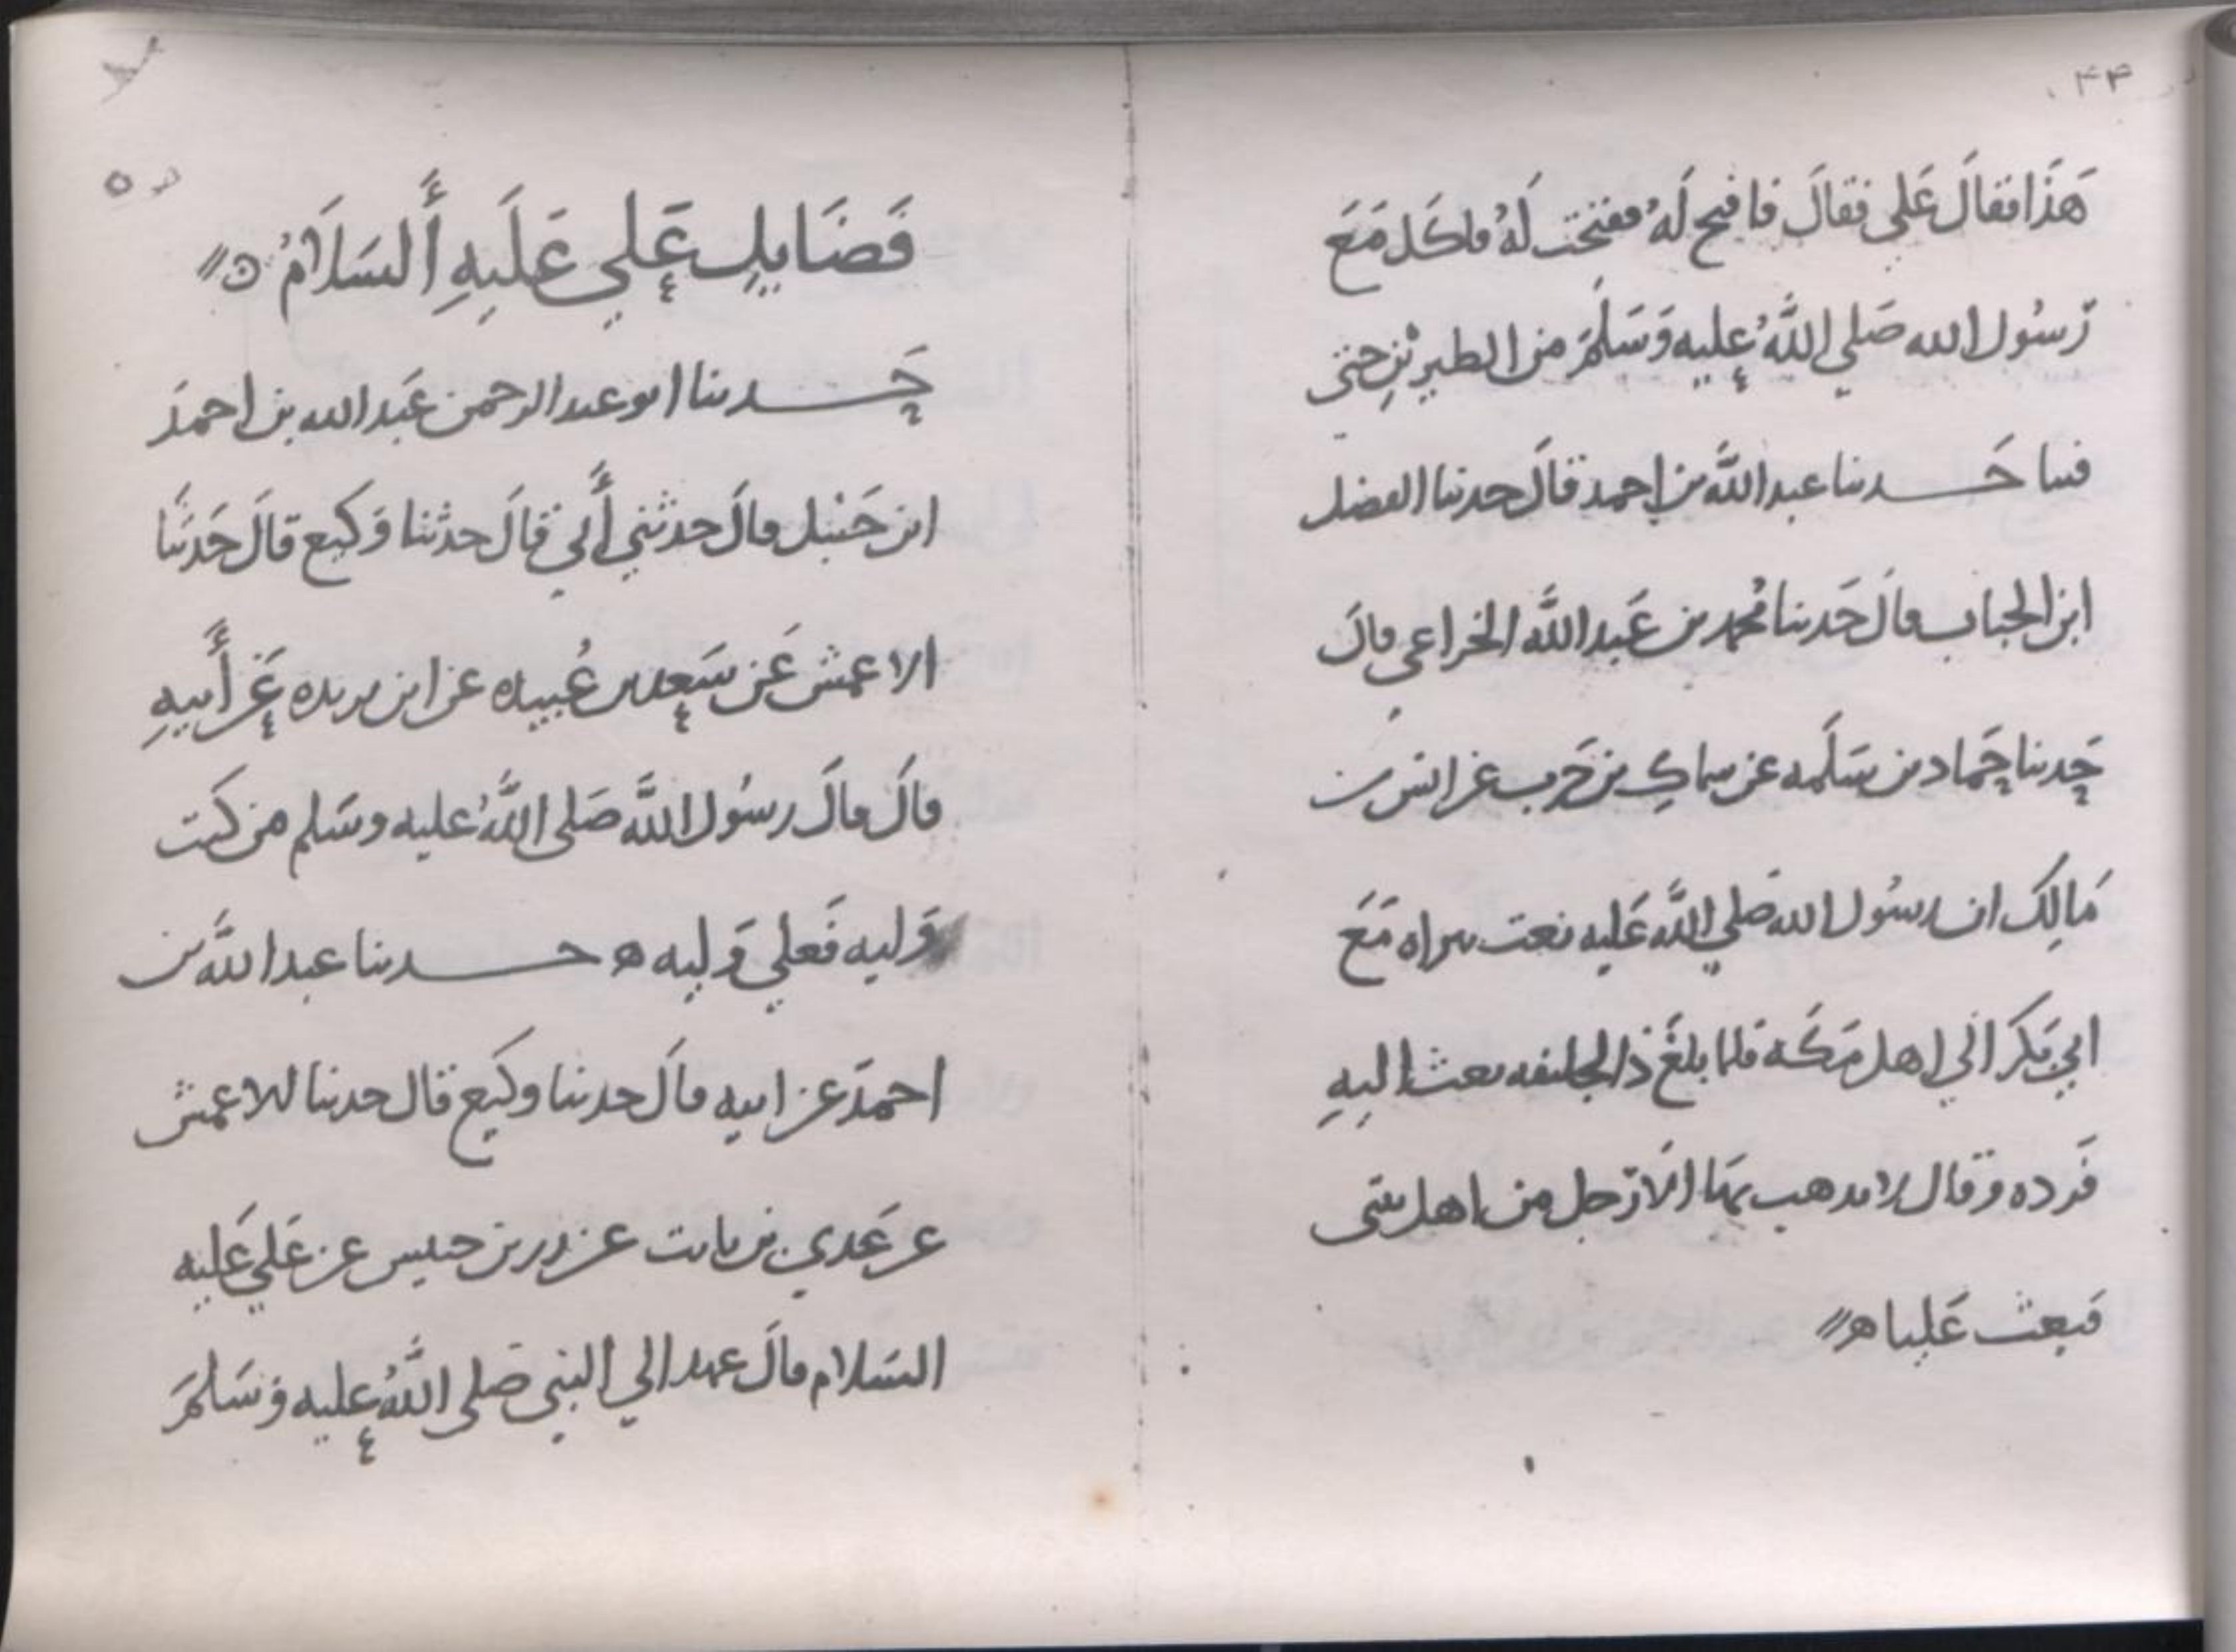 ٤٤
هَذَا فقالَ عَلى فقالَ فافتح لَهُ ففتحت لَهُ فاكَل مَعَ
رَسُول الله صَلي اللَّهُ عليه وَسَلمَ من الطيرين حتى
فنيا حَـــدثنا عبد اللَّه بن احمد قالَ حدثنا الفضل
ابن الحباب قالَ حَدثنا مُحمد بن عَبد اللَّه الخزاعي قالَ
حَدثنا حَماد بن سَلَمه عن سماكِ بن حَرب عن انس بن
مَالِك ان رسُول الله صَلي اللَّه عَليه بعث ببراه مَعَ
ابي بَكر الي اهل مَكَة فلما بلغَ ذا الحليفه بعث اليهِ
فَرده وَقال لا يذهب بهَا الاَ رَجل من اهل بيتى
فبعث عَليا ه
فَضَايل عَلي عَلَيهِ أَلسَلَامُ ه
حَـــدثنا ابو عبد الرحمن عَبد الله بن احمدَ
ابن حَنْبل قالَ حدثني أَبي قالَ حدثنا وَكيع قالَ حَدثنَا
الاعمش عَن سَعد بن عُبيده عن ابن بريده عَن أَبيهِ
قالَ قالَ رسُول اللَّه صَلى اللَّهُ عليه وسَلم من كنت
وَليه فَعلي وَليه ه حـــدثنا عبد اللَّه بن
احمدَ عن ابيه قالَ حدثنا وكيع قال حدثنا الاعمش
عن عَدي بن ثابت عن زر بن حبيس عن عَلي عَليه
السَلام قالَ عهد الي النبي صَلى اللَّهُ عليه وَسَلمَ